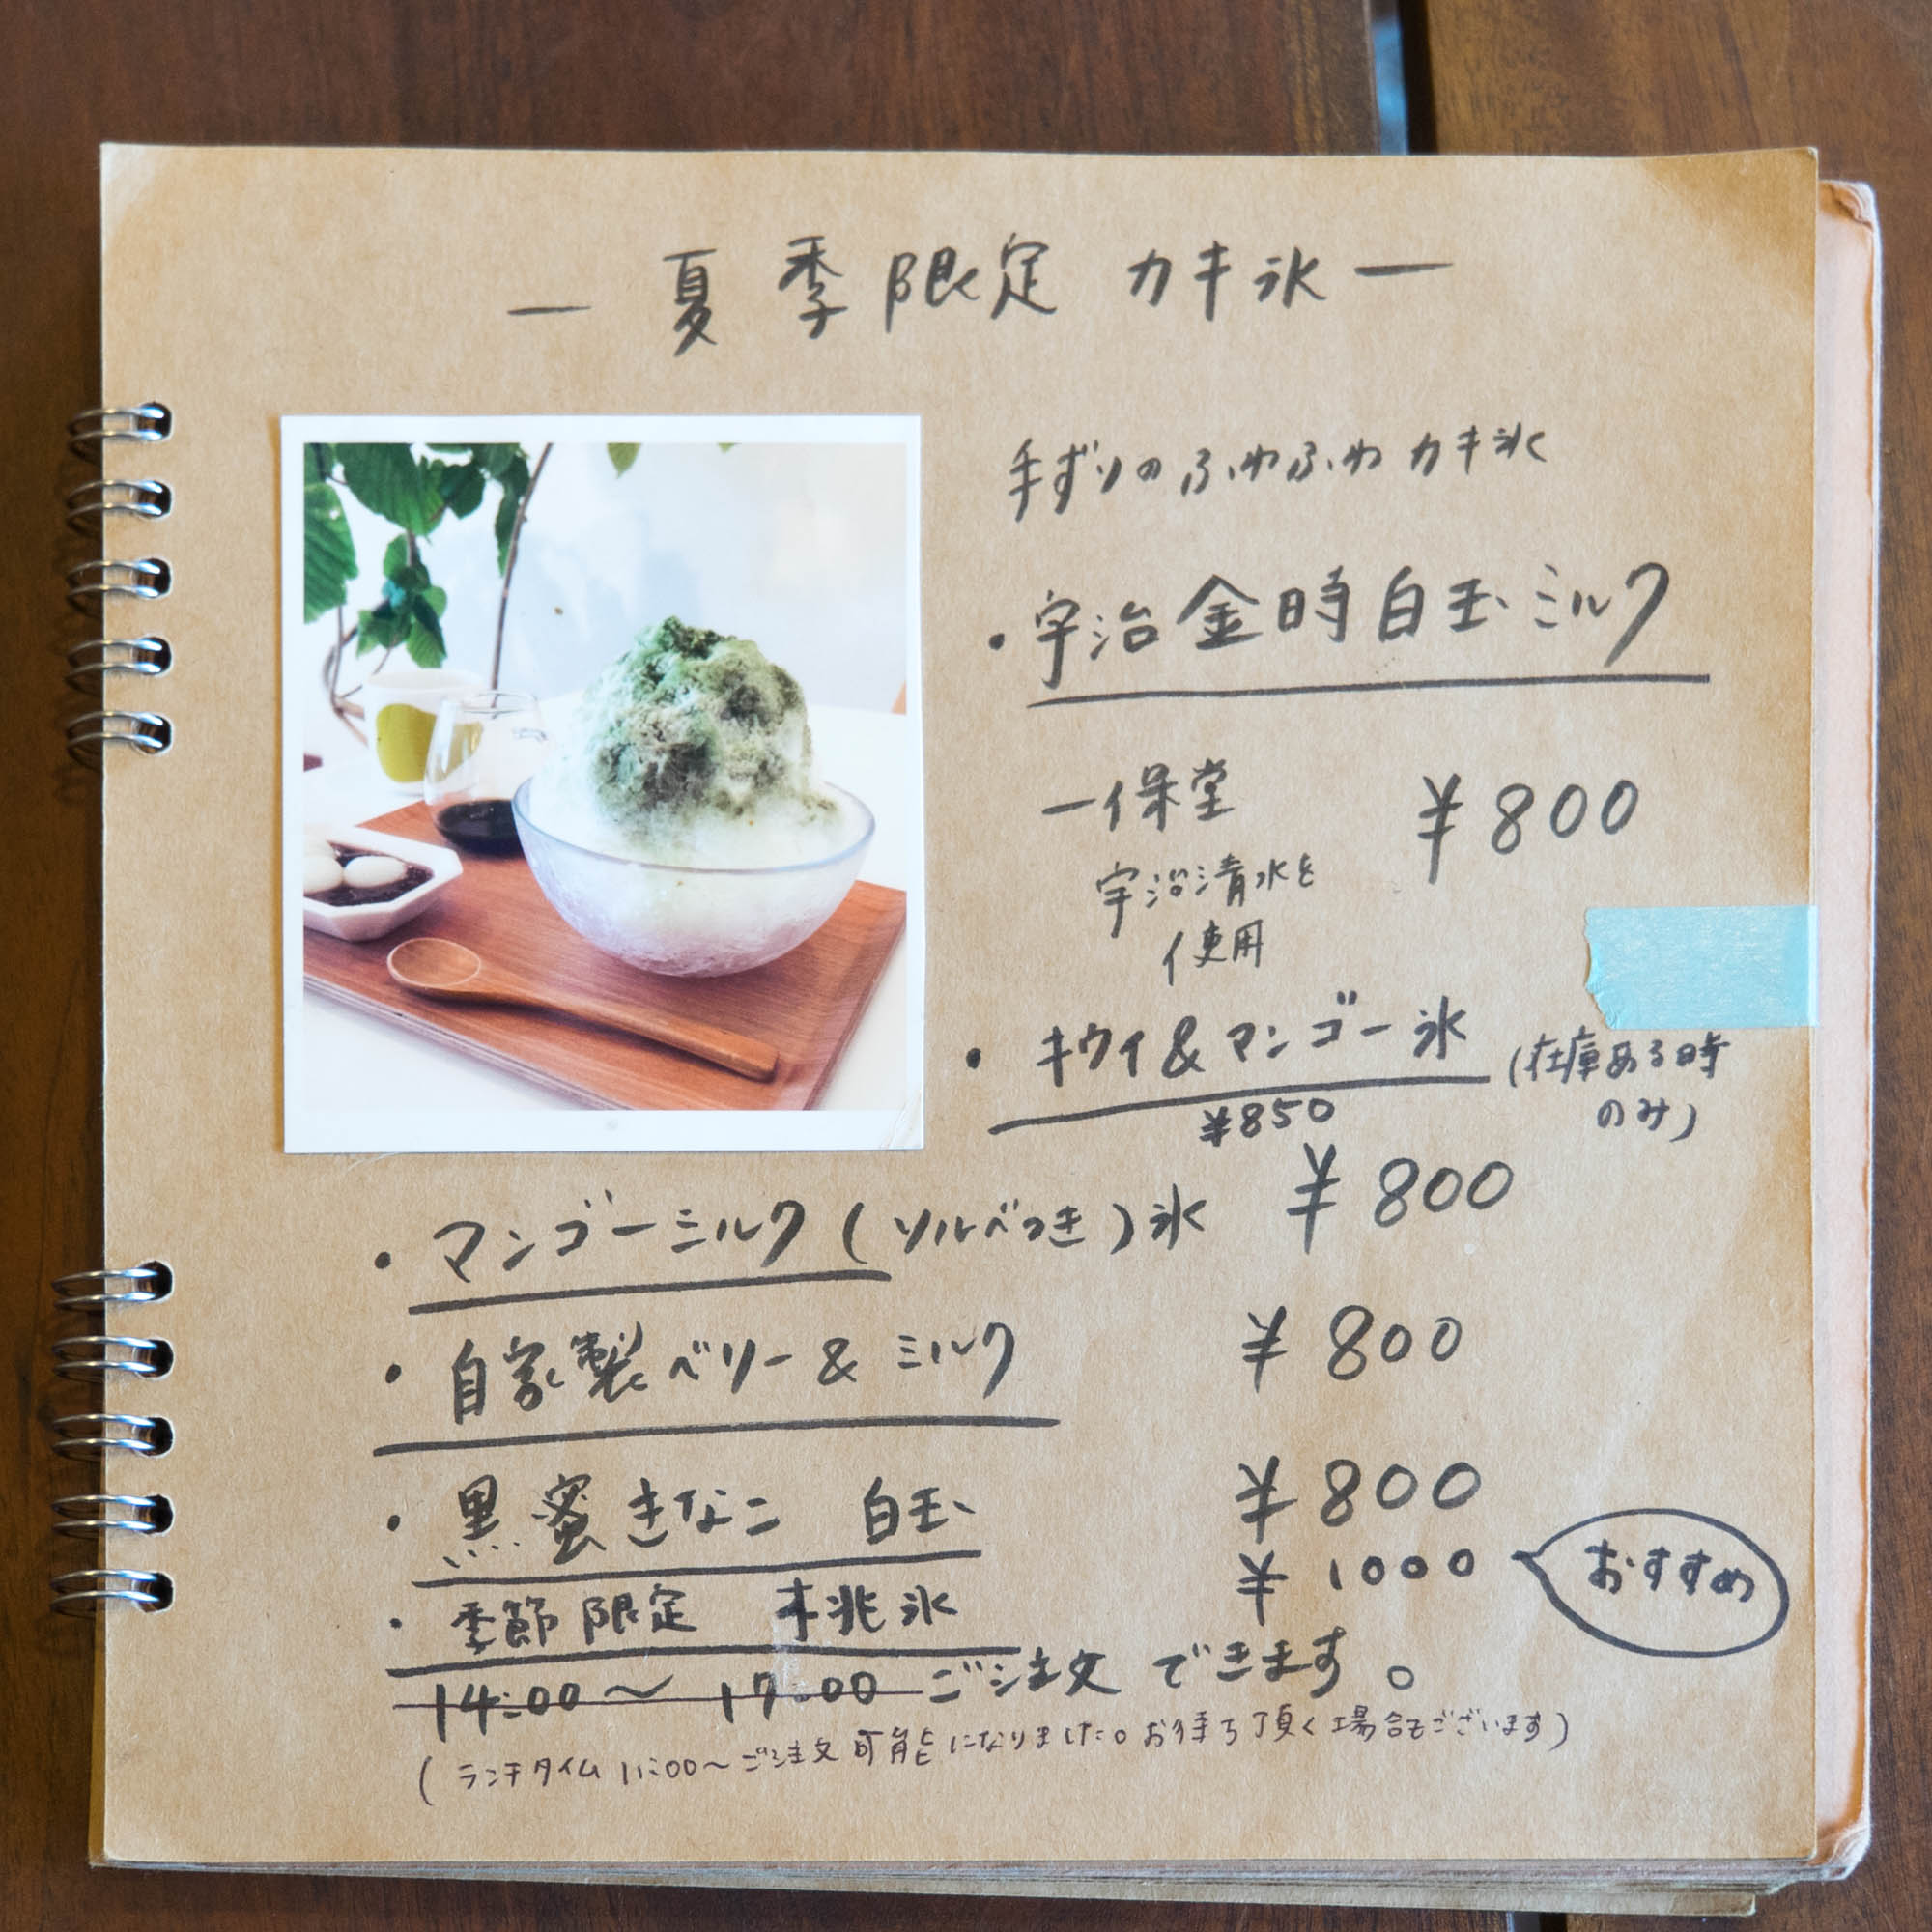 ― 夏季限定 カキ氷 ―
手ずりのふわふわカキ氷
・宇治金時白玉ミルク
一保堂 ¥800
宇治清水を
使用
・キウイ&マンゴー氷 (在庫ある時
のみ)
¥850
・マンゴーミルク(ソルベつき)氷 ¥800
・自家製ベリー&ミルク ¥800
・黒蜜きなこ 白玉 ¥800
・季節限定 桃氷 ¥1000 おすすめ
14:00〜17:00 ご注文できます。
(ランチタイム11:00〜ご注文可能になりました。お待ち頂く場合もございます)